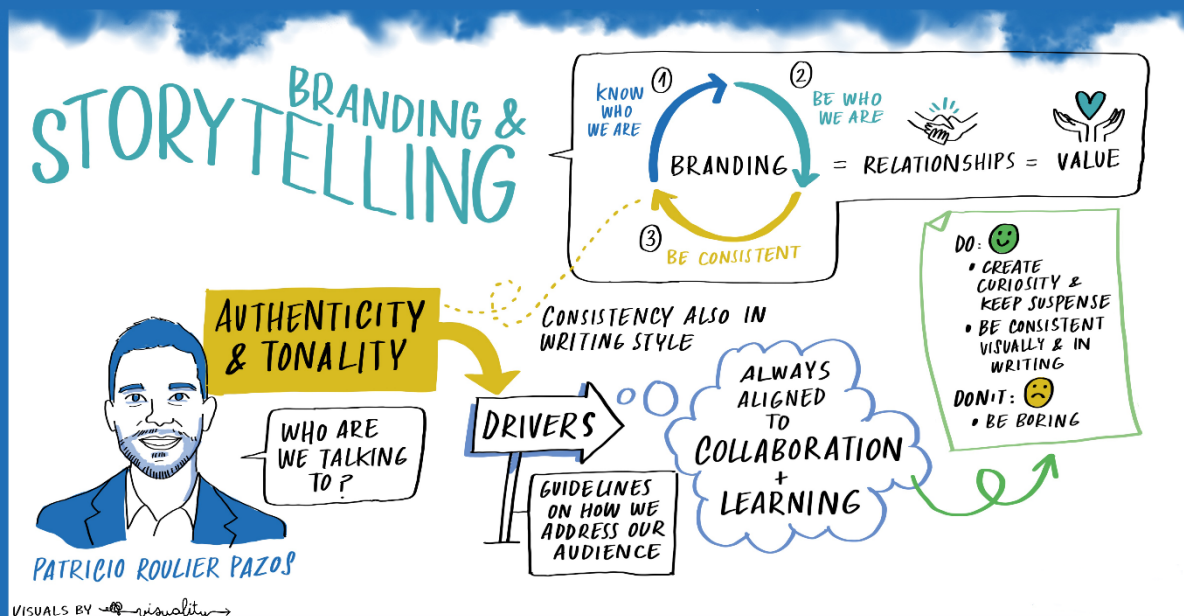 BRANDING &
STORYTELLING
①
KNOW
WHO
WE ARE
②
BE WHO
WE ARE
BRANDING
= RELATIONSHIPS = VALUE
③
BE CONSISTENT
AUTHENTICITY
& TONALITY
CONSISTENCY ALSO IN
WRITING STYLE
WHO ARE
WE TALKING
TO?
PATRICIO ROULIER PAZOS
DRIVERS
GUIDELINES
ON HOW WE
ADDRESS OUR
AUDIENCE
ALWAYS
ALIGNED
TO
COLLABORATION
+
LEARNING
DO:
• CREATE
CURIOSITY &
KEEP SUSPENSE
• BE CONSISTENT
VISUALLY & IN
WRITING
DON'T:
• BE BORING
VISUALS BY visuality